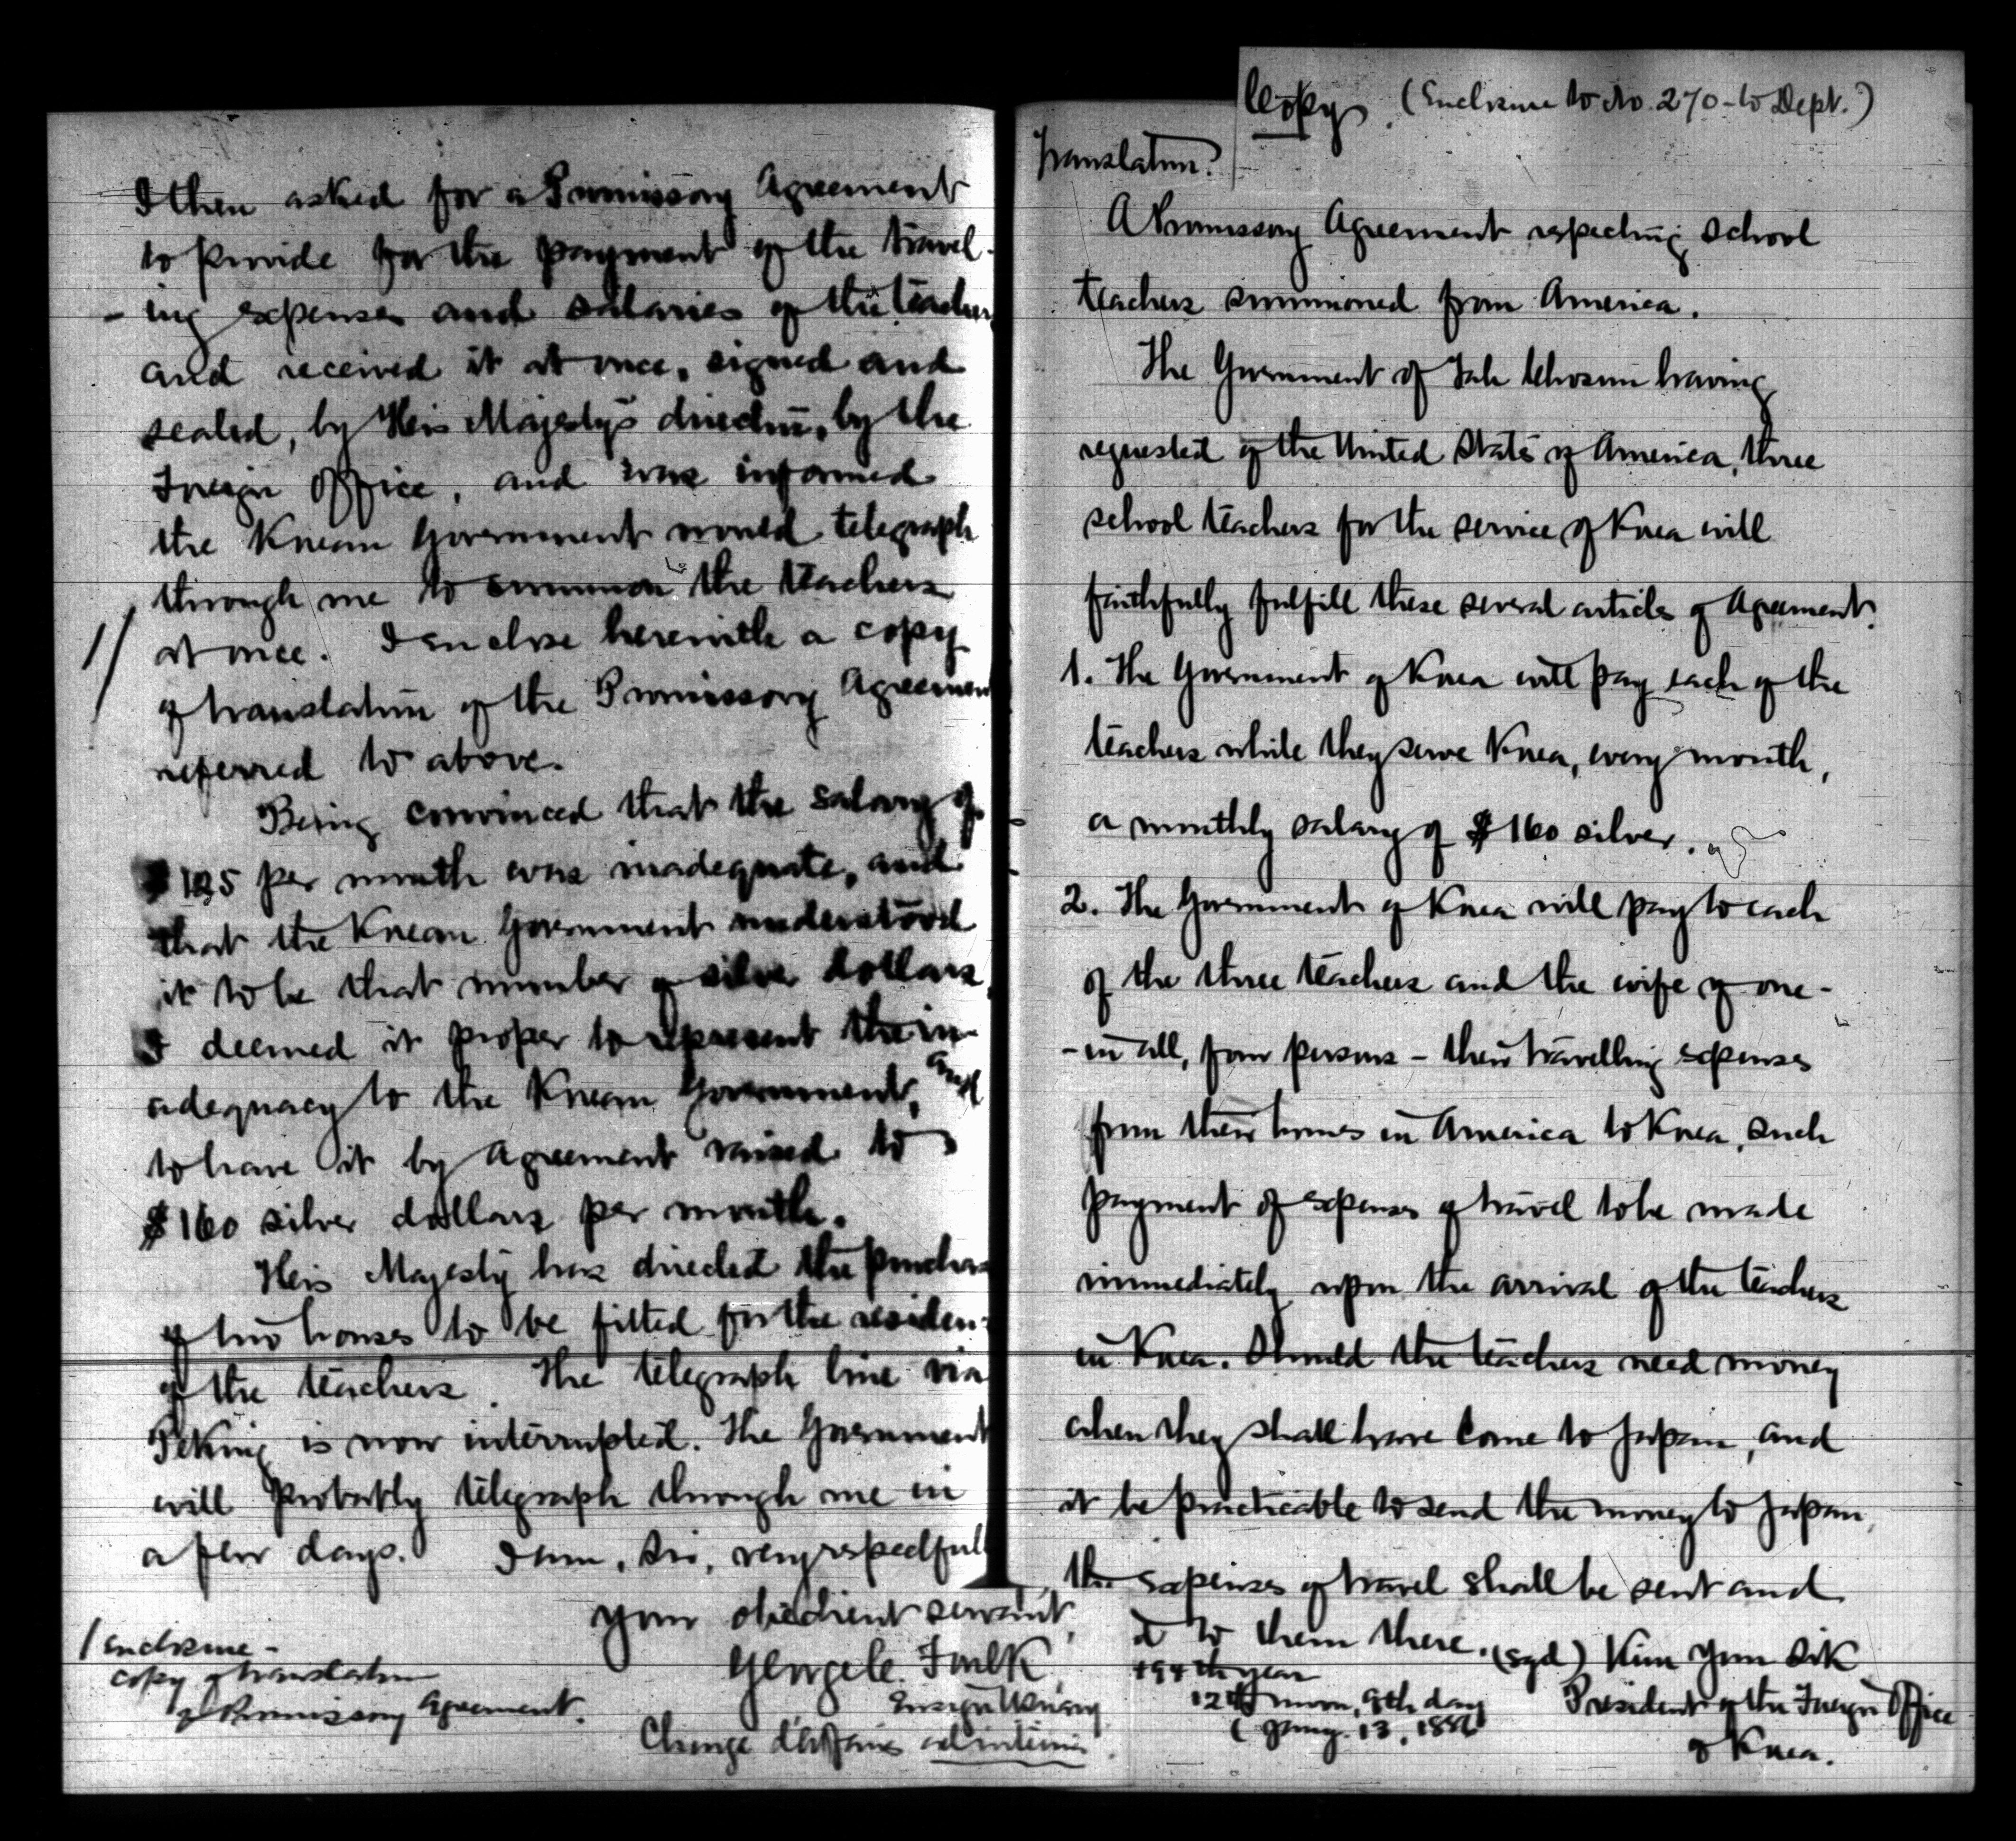 I then asked for a Promissory Agreement
to provide for the payment of the travel-
-ing expenses and salaries of the teachers
and received it at once, signed and
sealed, by His Majesty's direction, by the
Foreign Office, and was informed
the Korean Government would telegraph
through me to summon the teachers
at once. I enclose herewith a copy
of translation of the Promissory Agreement
referred to above.
Being convinced that the salary of
$125 per month was inadequate, and
that the Korean Government understood
it to be that number of silver dollars,
I deemed it proper to represent the in-
adequacy to the Korean Government, and
to have it by Agreement raised to
$160 silver dollars per month.
His Majesty has directed the purchase
of two houses to be fitted for the residence
of the teachers. The telegraph line via
Peking is now interrupted. The Government
will probably telegraph through me in
a few days. I am, Sir, very respectfully
your obedient servant,
George C. Foulk
Ensign U.S. Navy
Charge d'Affaires ad interim
1 Enclosure -
copy of translation
of Promissory Agreement.
Copy. (Enclosure to No. 270 - to Dept.)
Translation.
A Promissory Agreement respecting school
teachers summoned from America.
The Government of Tah Chosun having
requested of the United States of America, three
school teachers for the service of Korea will
faithfully fulfill these several articles of Agreement.
1. The Government of Korea will pay each of the
teachers while they serve Korea, every month,
a monthly salary of $160 silver.
2. The Government of Korea will pay to each
of the three teachers and the wife of one -
- in all, four persons - their travelling expenses
from their homes in America to Korea, such
payment of expenses of travel to be made
immediately upon the arrival of the teachers
in Korea. Should the teachers need money
when they shall have come to Japan, and
it be practicable to send the money to Japan,
the expenses of travel shall be sent and
to them there. (sgd) Kim Yun Sik
494th year
12th moon, 9th day
(Jany. 13, 1886
President of the Foreign Office
of Korea.